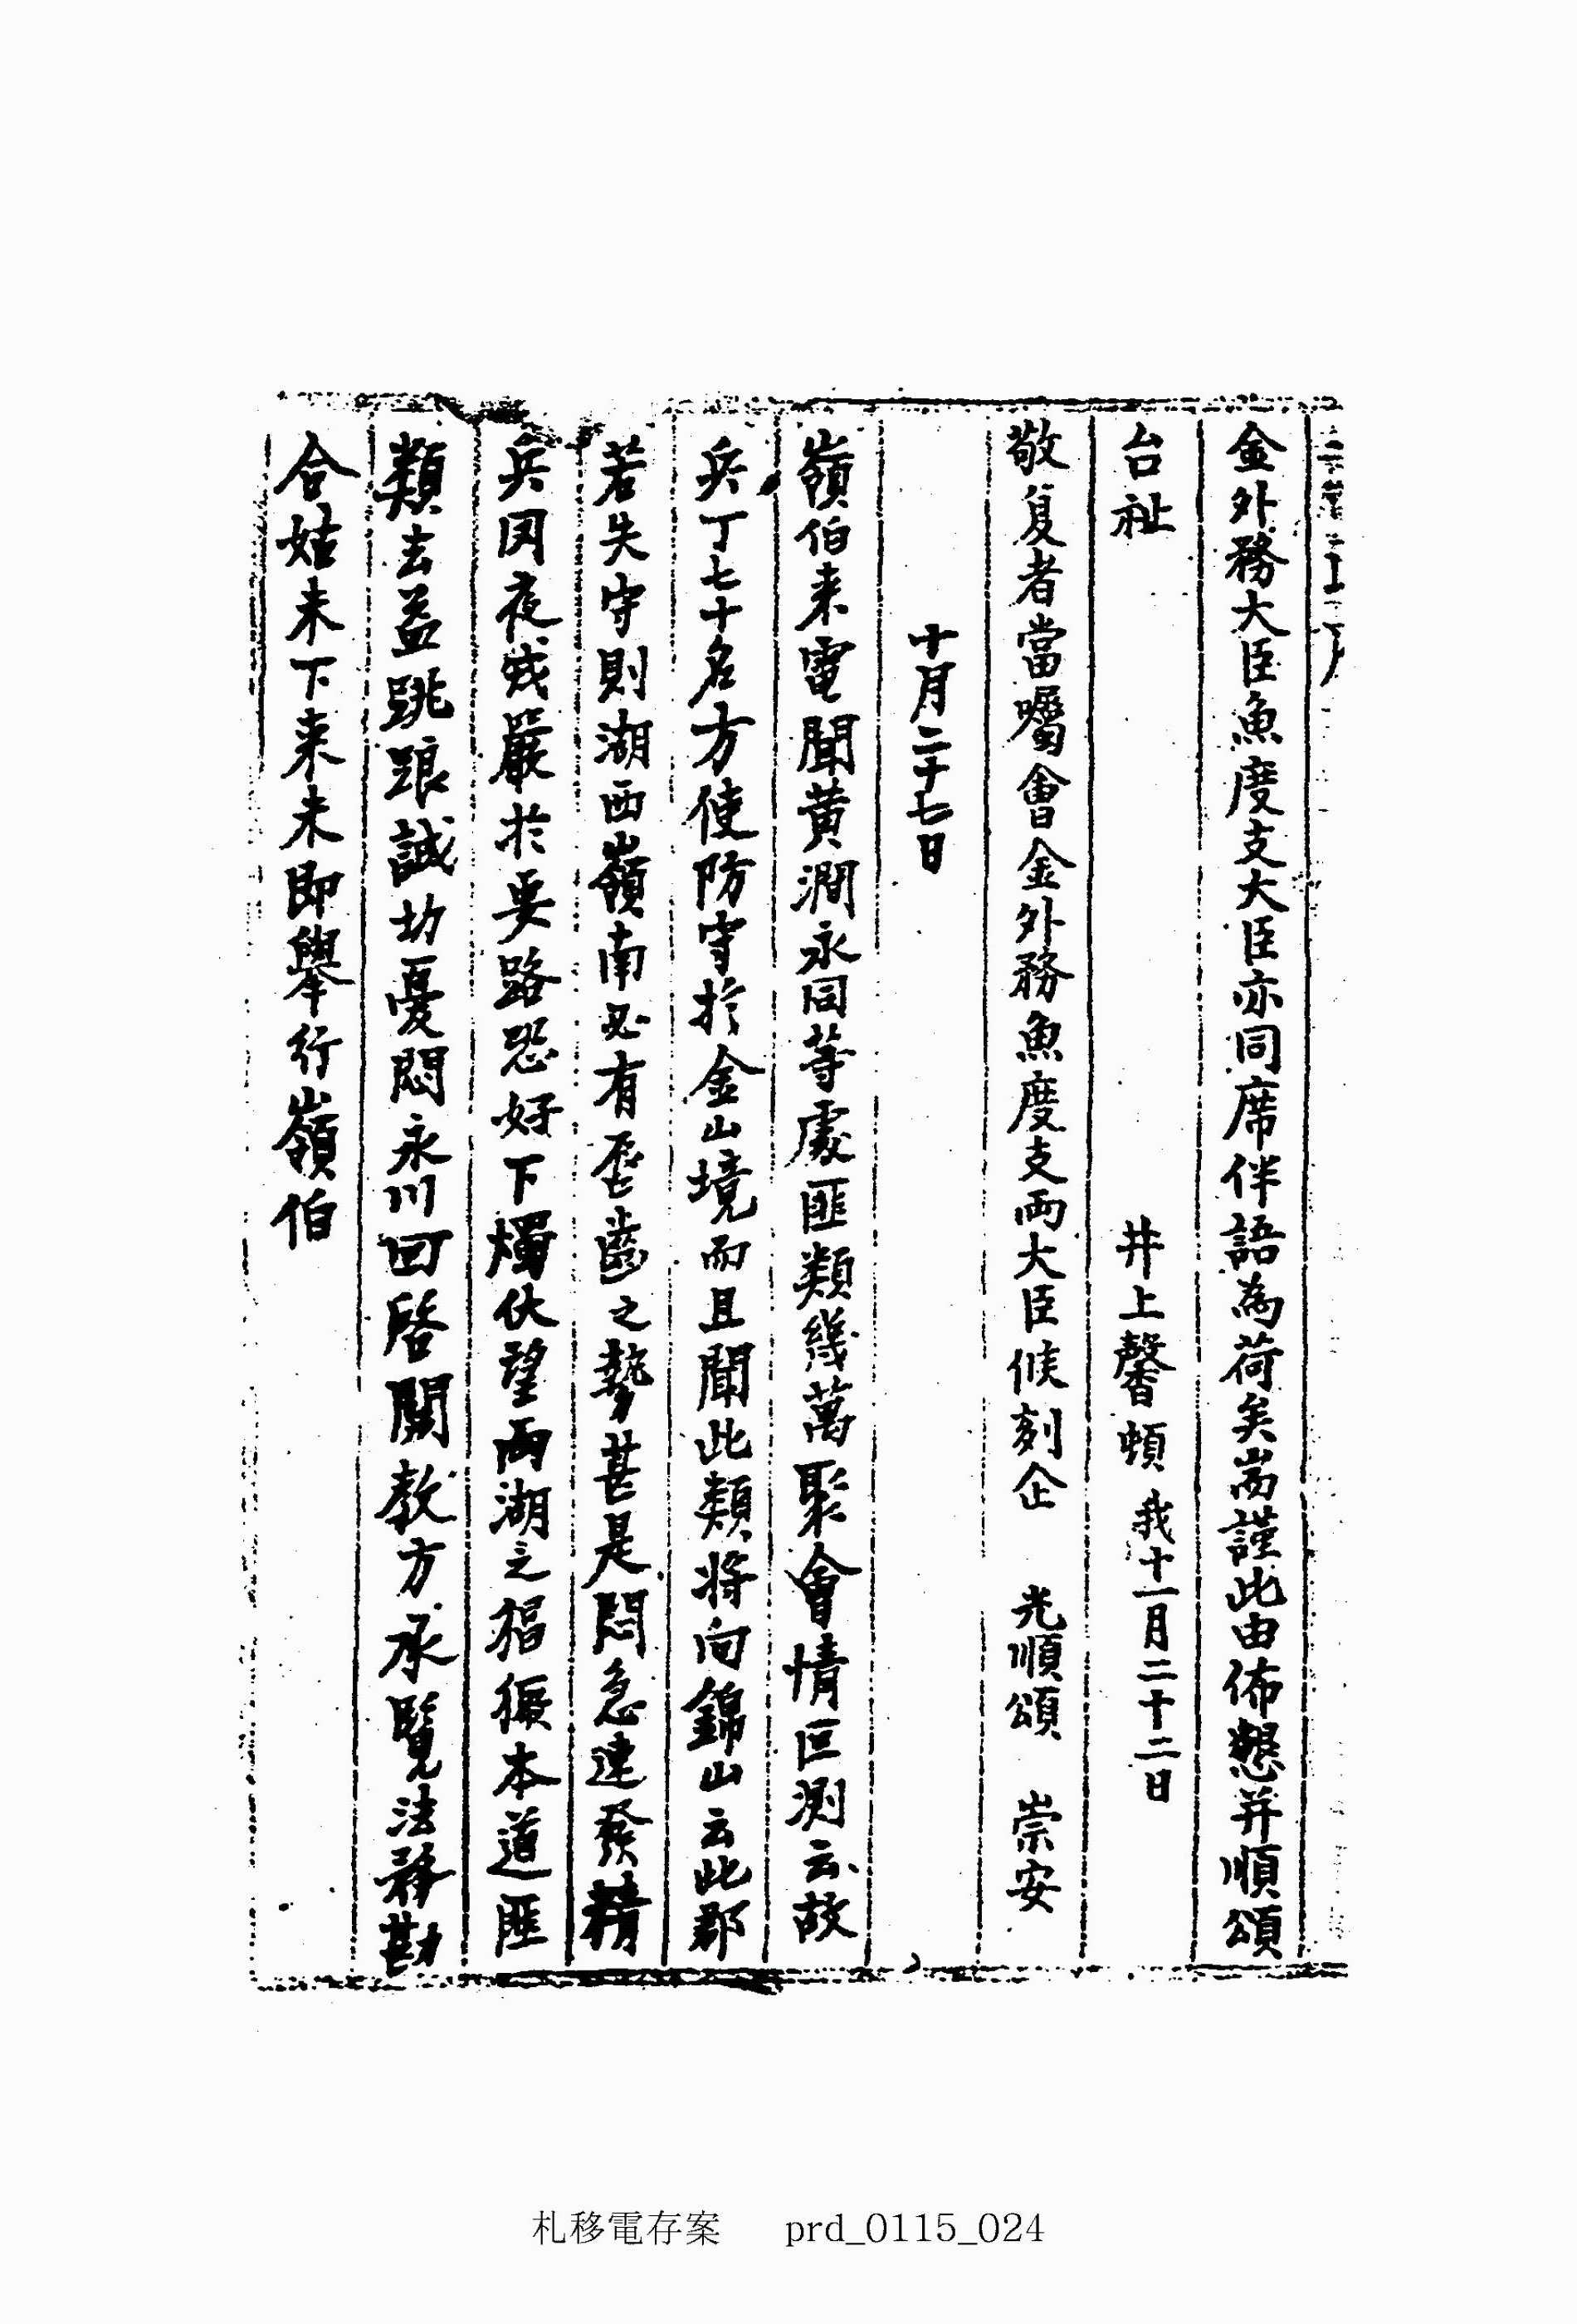 金外務大臣魚度支大臣亦同席伴語為荷矣耑謹此由佈懇并順頌
台祉　　井上馨頓　我十一月二十二日
敬复者當囑會金外務魚度支兩大臣候刻企　光順頌　崇安
十月二十七日
嶺伯来電聞黄澗永同等處匪類幾萬聚會情叵測云故
兵丁七十名方使防守於金山境而且聞此類将向錦山云此郡
若失守則湖西嶺南必有唇齒之勢甚是悶急速發精
兵罔夜戎嚴扵要路恐好下燭伏望兩湖之福䘐本道匪
類去益跳踉誠切憂悶永川回啓関教方承覽法務勘
合姑未下来未即舉行嶺伯
札移電存案　prd_0115_024